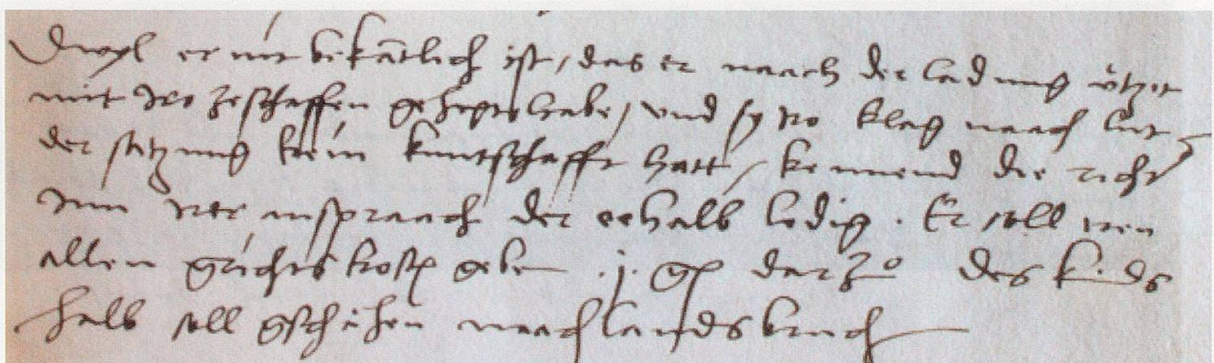 Dwyl er nit bekantlich ist, das er naach der ladung ützit
mit iro zeschaffen gehept habe, und sy iro klag naach lut
der satzung kein kuntschafft hatt, kennend die richter
inn irer anspraach der eehalb ledig. Er soll iren
allen grichts kosten geben .j. gl darzů des kinds
halb soll gschähen naach landsbruch